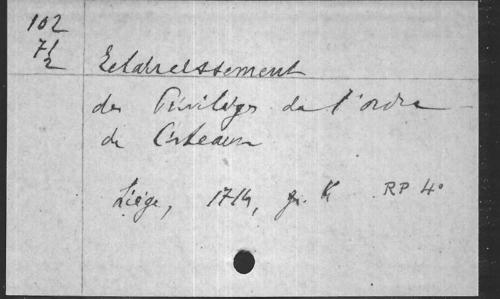 102
7/2
Eclaircissement
des Privilèges de l'ordre
de Citeaux
Liège, 1714, gr. K RP 4°